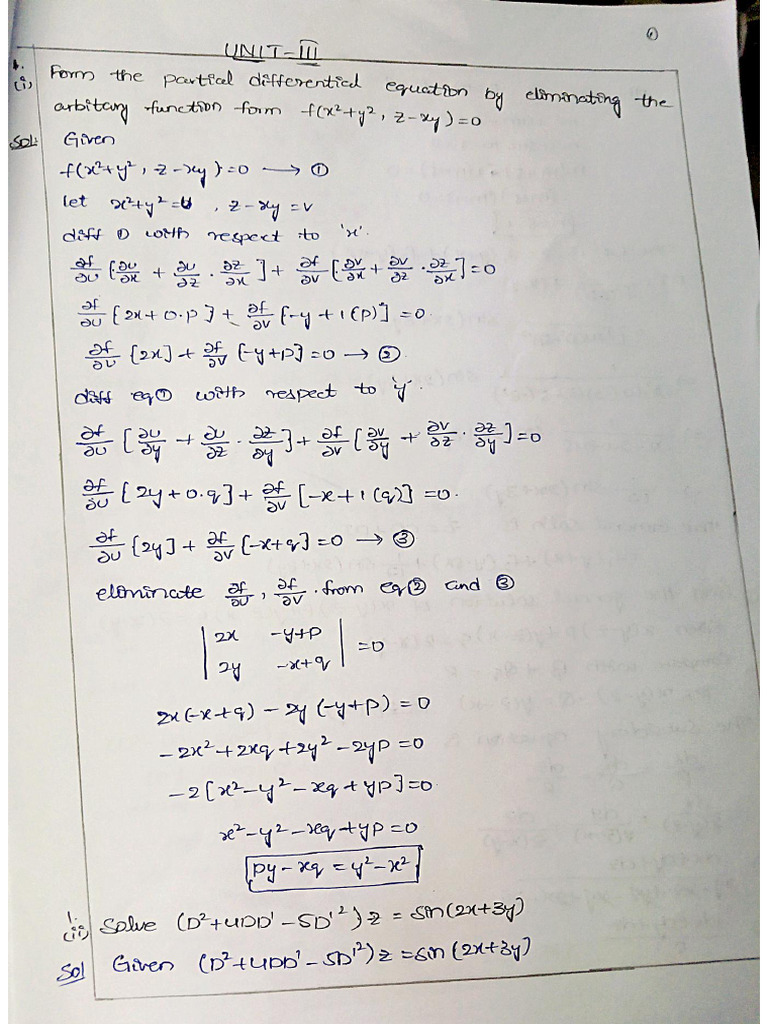 UNIT-III
1.
(i) Form the partial differential equation by eliminating the
arbitary function form f(x²+y², z-xy)=0
Sol: Given
f(x²+y², z-xy)=0 → ①
let x²+y²=u, z-xy=v
diff ① with respect to 'x'.
∂f/∂u [∂u/∂x + ∂u/∂z · ∂z/∂x] + ∂f/∂v [∂v/∂x + ∂v/∂z · ∂z/∂x] = 0
∂f/∂u [2x+0.p] + ∂f/∂v [-y+1(p)] = 0
∂f/∂v [2x] + ∂f/∂v [-y+p] = 0 → ②
diff eq① with respect to 'y'.
∂f/∂u [∂u/∂y + ∂u/∂z · ∂z/∂y] + ∂f/∂v [∂v/∂y + ∂v/∂z · ∂z/∂y] = 0
∂f/∂u [2y+0.q] + ∂f/∂v [-x+1(q)] = 0.
∂f/∂u [2y] + ∂f/∂v [-x+q] = 0 → ③
eliminate ∂f/∂u, ∂f/∂v. from eq② and ③
|2x -y+p|
|2y -x+q| = 0
2x(-x+q) - 2y(-y+p) = 0
-2x²+2xq+2y²-2yp = 0
-2[x²-y²-xq+yp] = 0
x²-y²-xq+yp = 0
py-xq = y²-x²
1.
(ii) Solve (D²+4DD'-5D'²)z = sin(2x+3y)
Sol Given (D²+4DD'-5D'²)z = sin(2x+3y)